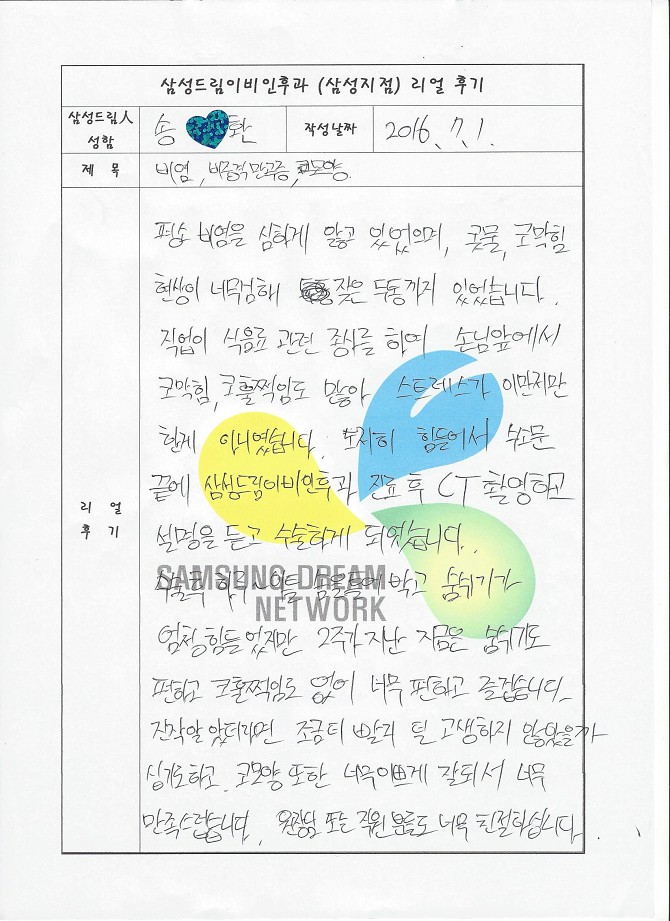 삼성드림이비인후과 (삼성지점) 리얼 후기
삼성드림人 성함 송 환 작성날짜 2016. 7. 1.
제 목 비염, 비중격만곡증, 코모양.
리 얼 후 기
평소 비염을 심하게 앓고 있었으며, 콧물, 코막힘
현상이 너무심해 잦은 두통까지 있었습니다.
직업이 식음료 관련 종사를 하여 손님앞에서
코막힘, 코훌쩍임도 많아 스트레스가 이만저만
한게 아니였습니다. 도저히 힘들어서 수소문
끝에 삼성드림이비인후과 진료 후 CT 촬영하고
설명을 듣고 수술하게 되었습니다.
SAMSUNG DREAM
NETWORK
수술후 하루~이틀 솜을틀어 막고 숨쉬기가
엄청 힘들었지만 2주가 지난 지금은 숨쉬기도
편하고 코훌쩍임도 없이 너무 편하고 즐겁습니다.
진작알았더라면 조금더 빨리 덜 고생하지 않았을까
싶기도하고, 코모양 또한 너무이쁘게 잘되서 너무
만족스럽습니다. 원장님 또는 직원분들도 너무 친절하십니다.